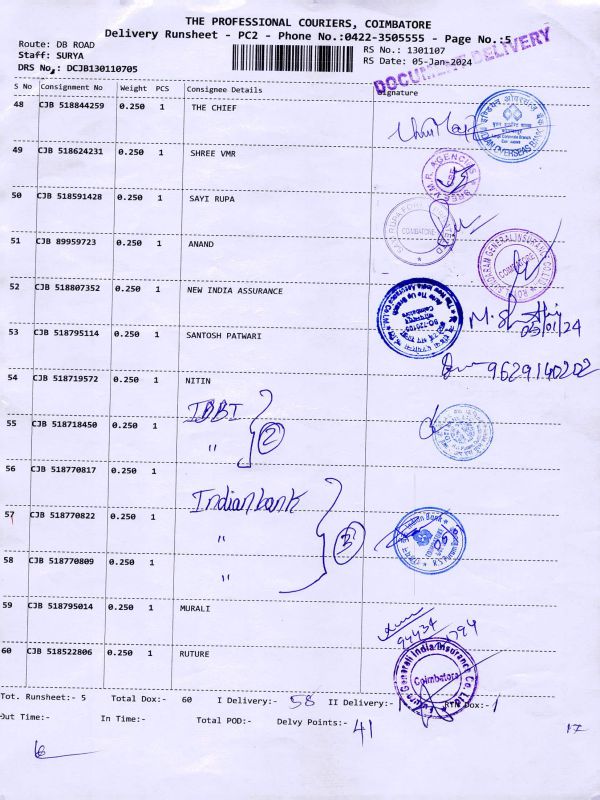 THE PROFESSIONAL COURIERS, COIMBATORE
Delivery Runsheet - PC2 - Phone No.:0422-3505555 - Page No.:5
Route: DB ROAD
RS No.: 1301107
Staff: SURYA
RS Date: 05-Jan-2024
DRS No.: DCJB130110705
DOCUMENT DELIVERY
S No Consignment No Weight PCS Consignee Details Signature
48 CJB 518844259 0.250 1 THE CHIEF
49 CJB 518624231 0.250 1 SHREE VMR
50 CJB 518591428 0.250 1 SAYI RUPA
51 CJB 89959723 0.250 1 ANAND
52 CJB 518807352 0.250 1 NEW INDIA ASSURANCE
05/01/24
53 CJB 518795114 0.250 1 SANTOSH PATWARI
9629140202
54 CJB 518719572 0.250 1 NITIN
IDBI
55 CJB 518718450 0.250 1 " 2
56 CJB 518770817 0.250 1 Indian bank
57 CJB 518770822 0.250 1 " 3
58 CJB 518770809 0.250 1 "
59 CJB 518795014 0.250 1 MURALI
94434 1794
60 CJB 518522806 0.250 1 RUTURE
Generali India Insurance Co. Ltd.
Coimbatore
Tot. Runsheet:- 5 Total Dox:- 60 I Delivery:- 58 II Delivery:- RTN Dox:- 1
Out Time:- In Time:- Total POD:- Delvy Points:- 41 17